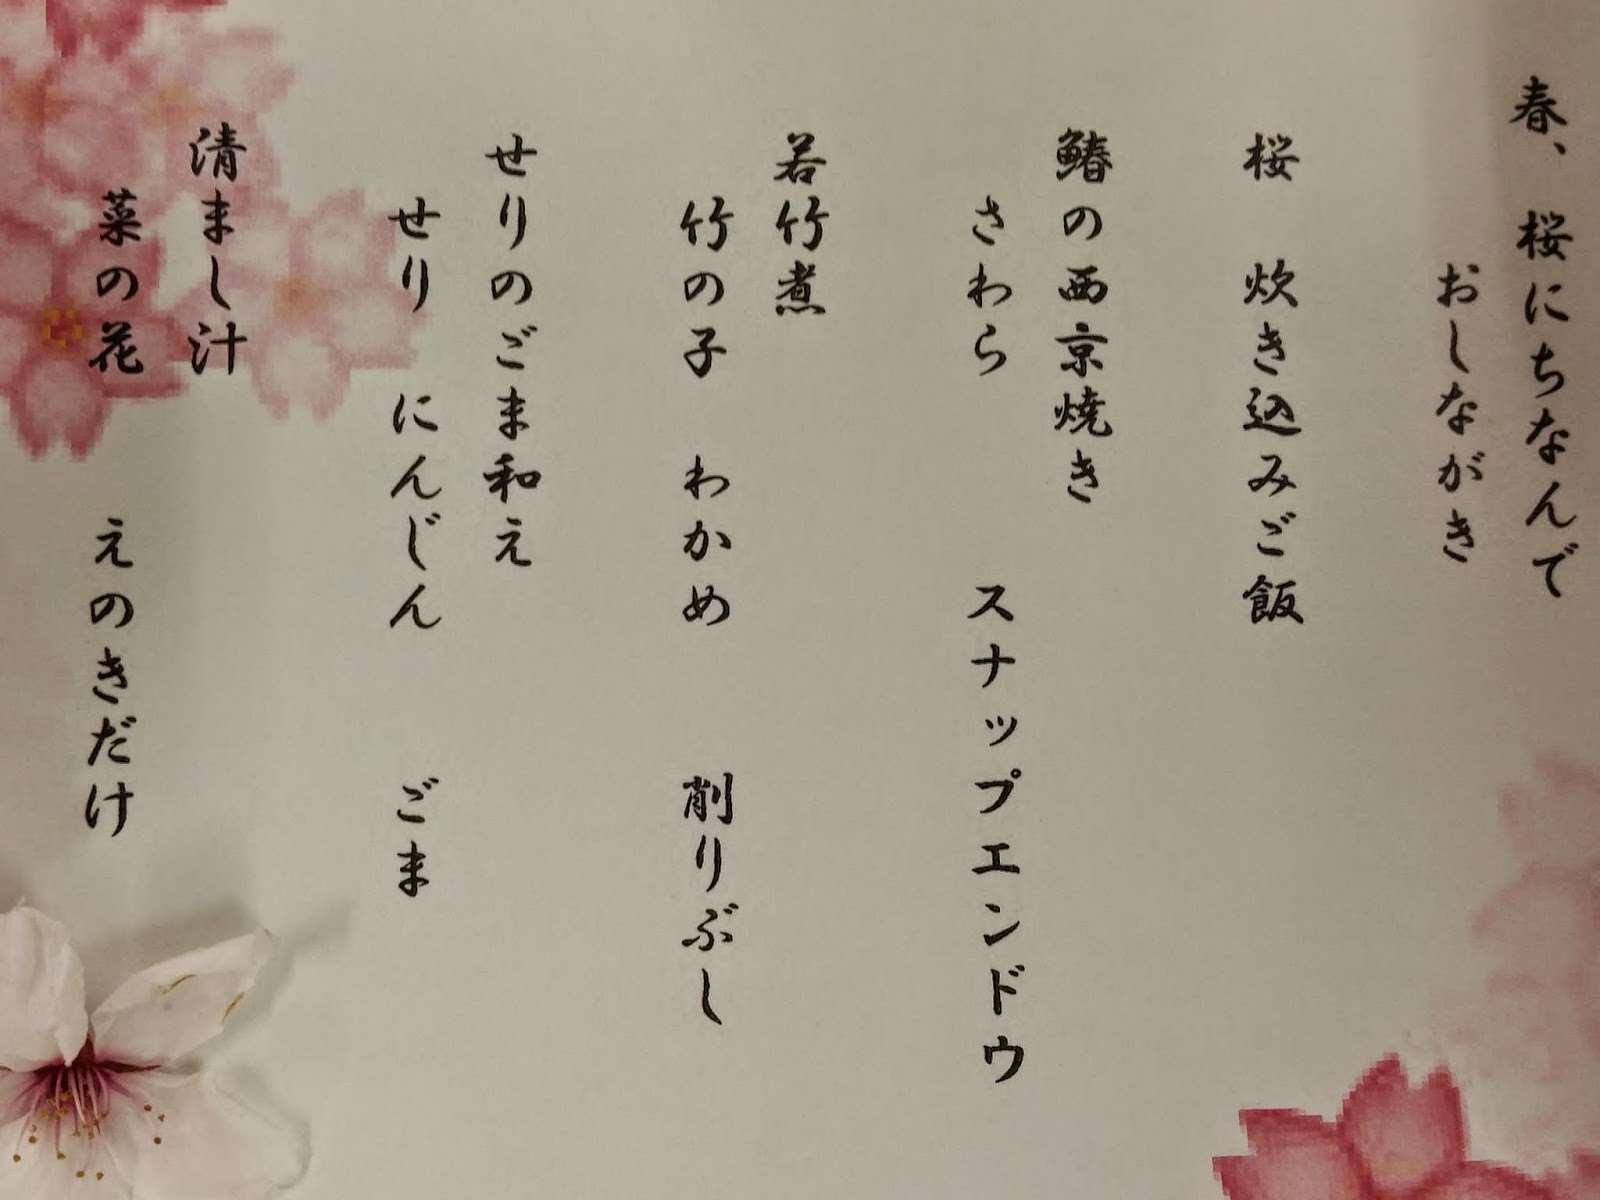 春、桜にちなんで
おしながき
桜　炊き込みご飯
鰆の西京焼き
さわら　スナップエンドウ
若竹煮
竹の子　わかめ　削りぶし
せりのごま和え
せり　にんじん　ごま
清まし汁
菜の花　えのきだけ